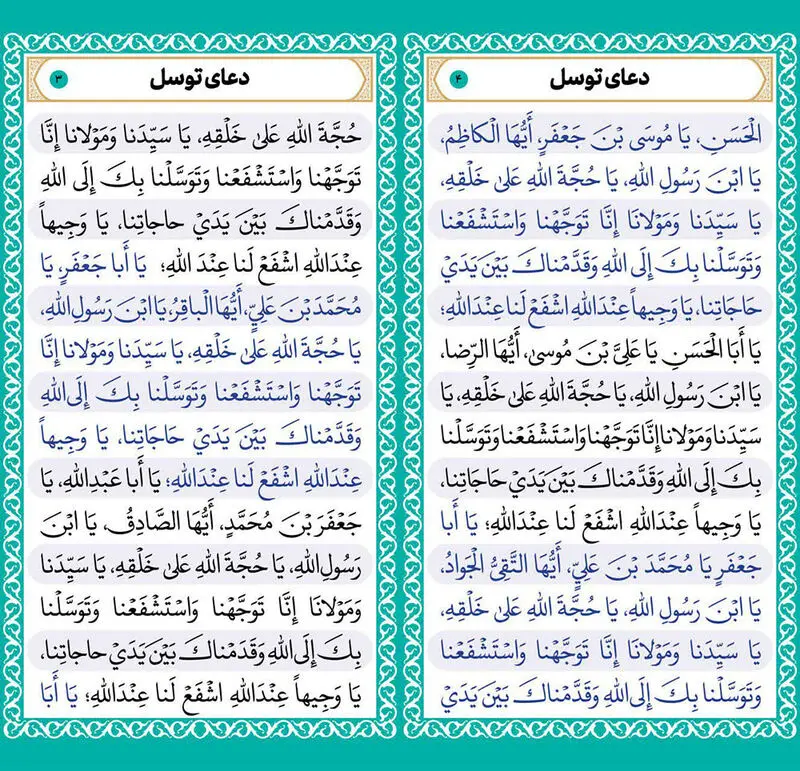 دعای توسل
۳
حُجَّةَ اللهِ عَلىٰ خَلْقِهِ، يَا سَيِّدَنا وَمَوْلانا إِنَّا
تَوَجَّهْنا وَاسْتَشْفَعْنا وَتَوَسَّلْنا بِكَ إِلَى اللهِ
وَقَدَّمْناكَ بَيْنَ يَدَيْ حاجاتِنا، يا وَجِيهاً
عِنْدَاللهِ اشْفَعْ لَنا عِنْدَ اللهِ؛ يَا أَبا جَعْفَرٍ، يَا
مُحَمَّدَ بْنَ عَلِيٍّ، أَيُّهَا الْباقِرُ، يَا ابْنَ رَسُولِ اللهِ،
يَا حُجَّةَ اللهِ عَلىٰ خَلْقِهِ، يَا سَيِّدَنا وَمَوْلانا إِنَّا
تَوَجَّهْنا وَاسْتَشْفَعْنا وَتَوَسَّلْنا بِكَ إِلَى اللهِ
وَقَدَّمْناكَ بَيْنَ يَدَيْ حاجاتِنا، يَا وَجِيهاً
عِنْدَاللهِ اشْفَعْ لَنا عِنْدَاللهِ؛ يَا أَبا عَبْدِاللهِ، يَا
جَعْفَرَ بْنَ مُحَمَّدٍ، أَيُّهَا الصَّادِقُ، يَا ابْنَ
رَسُولِ اللهِ، يَا حُجَّةَ اللهِ عَلىٰ خَلْقِهِ، يَا سَيِّدَنا
وَمَوْلانَا إِنَّا تَوَجَّهْنا وَاسْتَشْفَعْنا وَتَوَسَّلْنا
بِكَ إِلَى اللهِ وَقَدَّمْناكَ بَيْنَ يَدَيْ حاجاتِنا،
يَا وَجِيهاً عِنْدَاللهِ اشْفَعْ لَنا عِنْدَاللهِ؛ يَا أَبَا
دعای توسل
۴
الْحَسَنِ، يَا مُوسَى بْنَ جَعْفَرٍ، أَيُّهَا الْكاظِمُ،
يَا ابْنَ رَسُولِ اللهِ، يَا حُجَّةَ اللهِ عَلىٰ خَلْقِهِ،
يَا سَيِّدَنا وَمَوْلانَا إِنَّا تَوَجَّهْنا وَاسْتَشْفَعْنا
وَتَوَسَّلْنا بِكَ إِلَى اللهِ وَقَدَّمْناكَ بَيْنَ يَدَيْ
حاجَاتِنا، يَا وَجِيهاً عِنْدَاللهِ اشْفَعْ لَنا عِنْدَاللهِ؛
يَا أَبَا الْحَسَنِ يَا عَلِيَّ بْنَ مُوسىٰ، أَيُّهَا الرِّضا،
يَا ابْنَ رَسُولِ اللهِ، يَا حُجَّةَ اللهِ عَلىٰ خَلْقِهِ، يَا
سَيِّدَنا وَمَوْلانا إِنَّا تَوَجَّهْنا وَاسْتَشْفَعْنا وَتَوَسَّلْنا
بِكَ إِلَى اللهِ وَقَدَّمْناكَ بَيْنَ يَدَيْ حاجاتِنا،
يَا وَجِيهاً عِنْدَاللهِ اشْفَعْ لَنا عِنْدَاللهِ؛ يَا أَبا
جَعْفَرٍ يَا مُحَمَّدَ بْنَ عَلِيٍّ، أَيُّهَا التَّقِيُّ الْجَوادُ،
يَا ابْنَ رَسُولِ اللهِ، يَا حُجَّةَ اللهِ عَلىٰ خَلْقِهِ،
يَا سَيِّدَنا وَمَوْلانَا إِنَّا تَوَجَّهْنا وَاسْتَشْفَعْنا
وَتَوَسَّلْنا بِكَ إِلَى اللهِ وَقَدَّمْناكَ بَيْنَ يَدَيْ